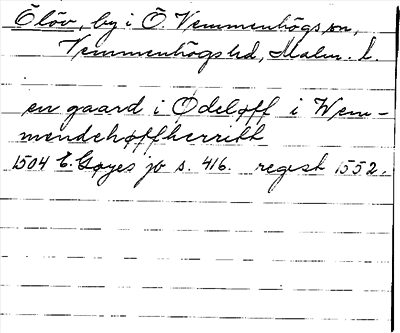 Ölöv, by i Ö. Vemmenhögs sn,
Vemmenhögs hd, Malm. l.
en gaard i Ødeløff i Wem-
mendehøffherritt
1504 E. Gøyes jb s. 416. regist 1552.